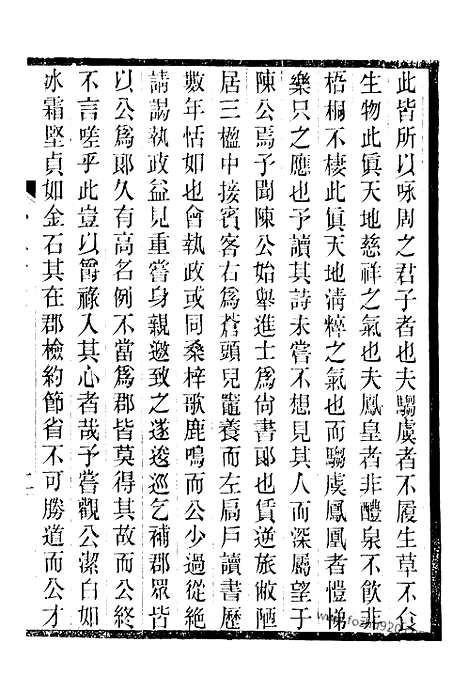 此皆所以咏周之君子者也夫騶虞者不履生草不食
生物此眞天地慈祥之氣也夫鳳皇者非醴泉不飮非
梧桐不棲此眞天地淸粹之氣也而騶虞鳳凰者愷悌
樂只之應也予讀其詩未嘗不想見其人而深屬望于
陳公焉予聞陳公始舉進士爲尙書郞也賃逆旅敝陋
居三楹中接賓客右爲蒼頭兒竈養而左扃戶讀書歷
數年恬如也會執政或同桑梓歌鹿鳴而公少過從絶
請謁執政益見重嘗身親邀致之遂逡巡乞補郡眾皆
以公爲郞久有高名例不當爲郡皆莫得其故而公終
不言嗟乎此豈以爵祿入其心者哉予嘗觀公潔白如
冰霜堅貞如金石其在郡檢約節省不可勝道而公才